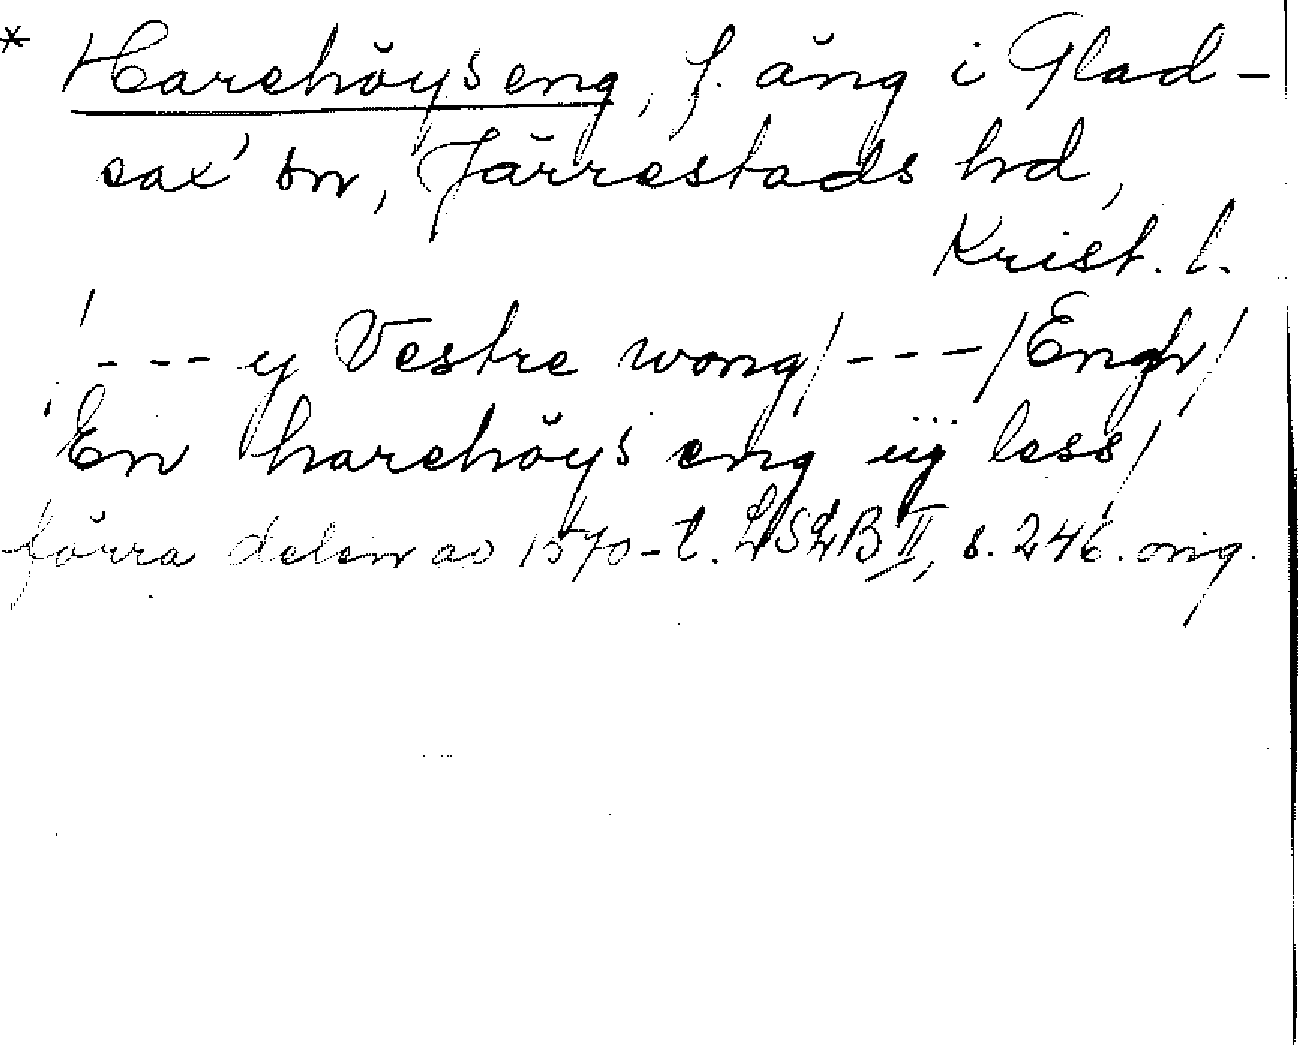 * Harehöys eng, f. äng i Glad-
sax' sn, Järrestads hd,
Krist. l.
'--- y Vestre wong/---/Engh/
En harehöys eng iij less/
förra delen av 1570-t. LSLB II, s. 246. orig.